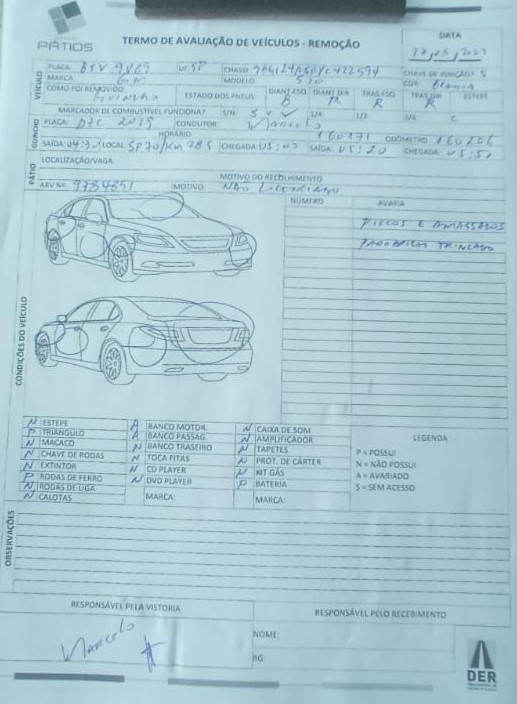 PÁTIOS
TERMO DE AVALIAÇÃO DE VEÍCULOS - REMOÇÃO
DATA
VEÍCULO
PLACA:
UF: SP
CHASSI
CHAVE DE IGNIÇÃO? S
MARCA: GM
MODELO S10
COR:
COMO FOI REMOVIDO Guincho
ESTADO DOS PNEUS:
DIANT ESQ
DIANT DIR
TRAS ESQ
TRAS DIR
ESTEPE
R
R
MARCADOR DE COMBUSTÍVEL FUNCIONA?
S/N
1/4
1/2
3/4
C
GUINCHO
PLACA:
CONDUTOR: Marcelo
HORÁRIO
ODÔMETRO
SAÍDA:
LOCAL:
CHEGADA:
SAÍDA: 05:20
CHEGADA:
PÁTIO
LOCALIZAÇÃO/VAGA:
MOTIVO DO RECOLHIMENTO
ARV Nº: 9784851
MOTIVO: NÃO LICENCIADO
CONDIÇÕES DO VEÍCULO
NÚMERO
AVARIA
RISCOS E AMASSADOS
PARABRISA TRINCADO
N ESTEPE
P TRIÂNGULO
N MACACO
N CHAVE DE RODAS
N EXTINTOR
P RODAS DE FERRO
N RODAS DE LIGA
N CALOTAS
A BANCO MOTOR.
A BANCO PASSAG.
N BANCO TRASEIRO
N TOCA FITAS
N CD PLAYER
N DVD PLAYER
MARCA:
N CAIXA DE SOM
N AMPLIFICADOR
N TAPETES
N PROT. DE CÁRTER
N KIT GÁS
P BATERIA
MARCA:
LEGENDA
P = POSSUI
N = NÃO POSSUI
A = AVARIADO
S = SEM ACESSO
OBSERVAÇÕES
RESPONSÁVEL PELA VISTORIA
RESPONSÁVEL PELO RECEBIMENTO
Marcelo
NOME:
RG:
DER